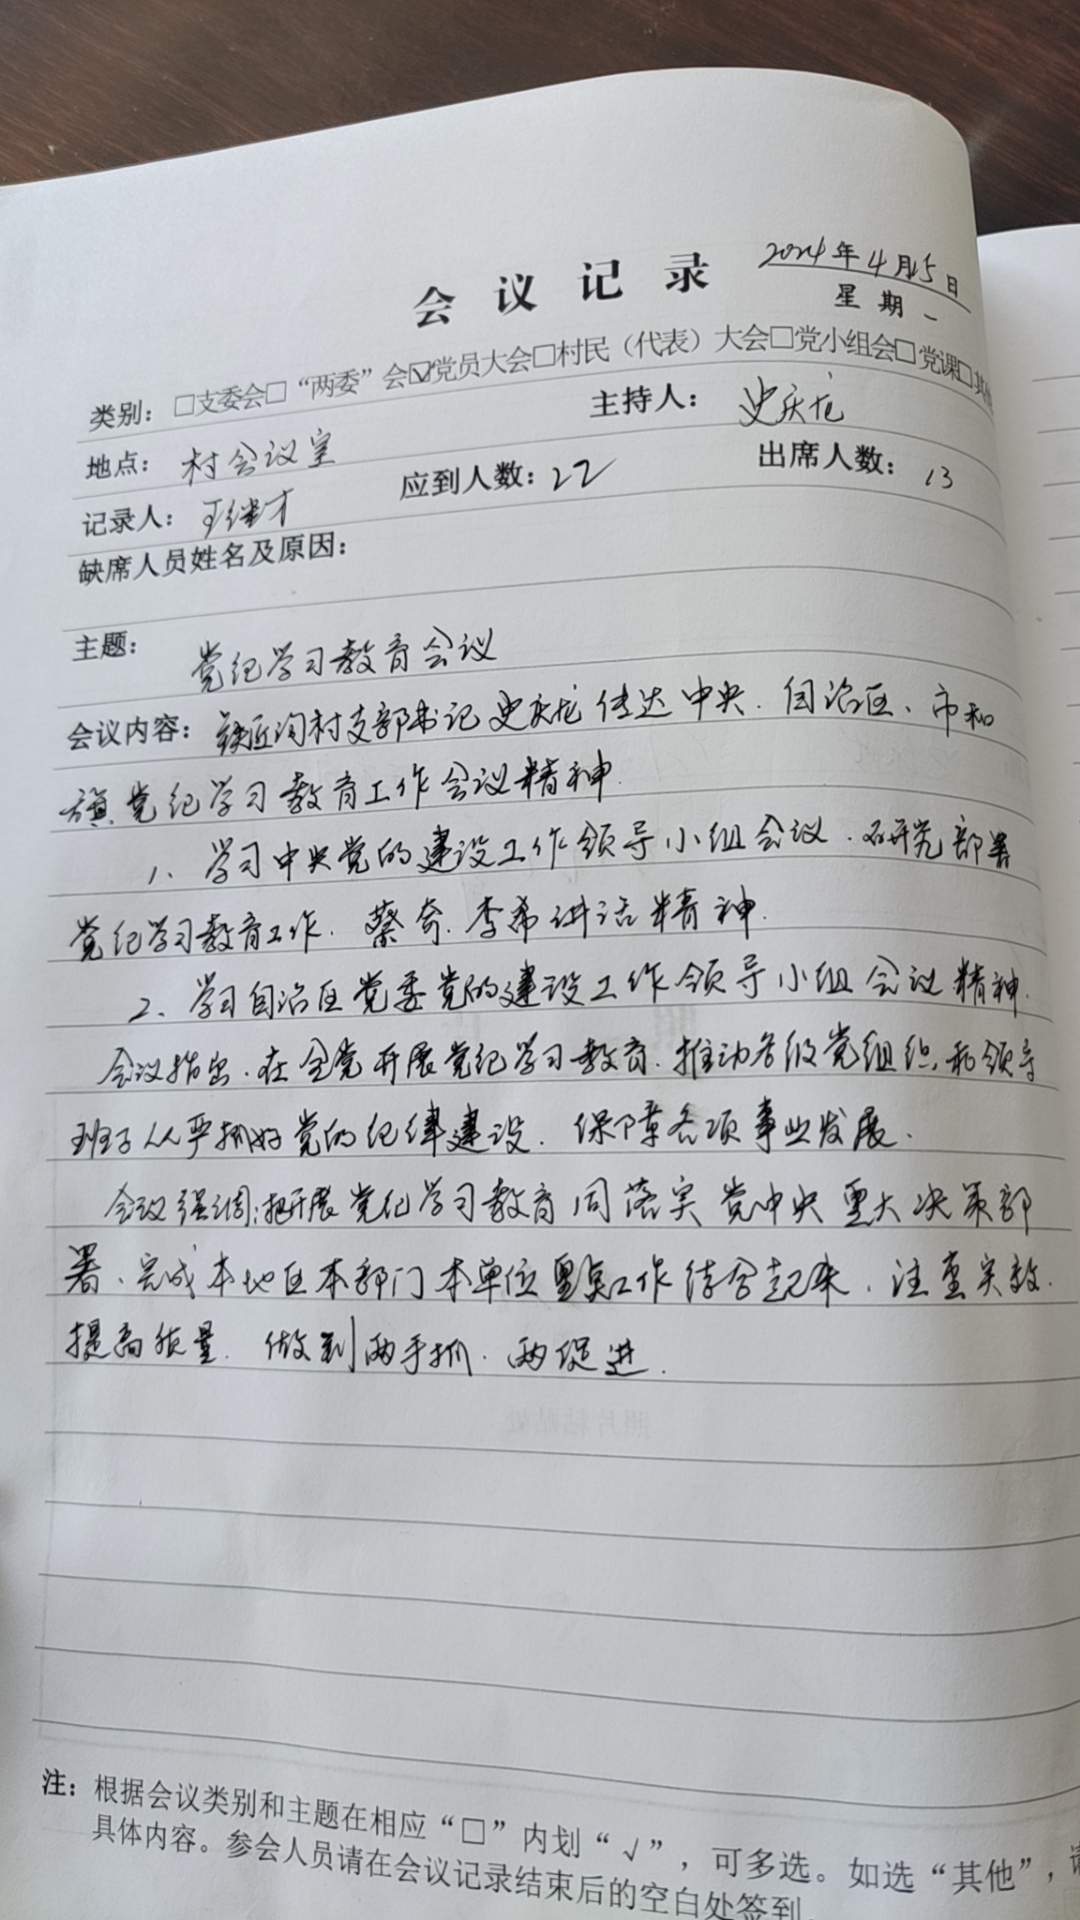 会议记录
2024年4月15日
星期一
类别：□支委会□“两委”会☑党员大会□村民（代表）大会□党小组会□党课□其他
地点：村会议室 主持人：史庆龙
记录人：王继才 应到人数：22 出席人数：13
缺席人员姓名及原因：
主题：党纪学习教育会议
会议内容：铁匠沟村支部书记史庆龙传达中央、自治区、市和
旗党纪学习教育工作会议精神.
1、学习中央党的建设工作领导小组会议、研究部署
党纪学习教育工作. 蔡奇.李希讲话精神.
2、学习自治区党委党的建设工作领导小组会议精神.
会议指出.在全党开展党纪学习教育.推动各级党组织和领导
班子从严抓好党的纪律建设.保障各项事业发展.
会议强调:把开展党纪学习教育同落实党中央重大决策部
署、完成本地区本部门本单位重点工作结合起来.注重实效.
提高质量.做到两手抓.两促进.
注：根据会议类别和主题在相应“□”内划“√”，可多选。如选“其他”，
具体内容。参会人员请在会议记录结束后的空白处签到。